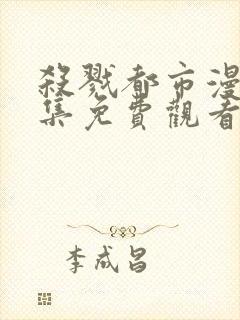 殺戮都市漫
集免費觀看
李成昌